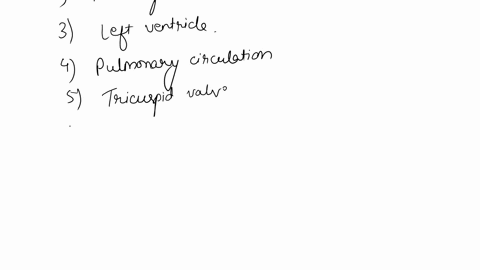 3) Left ventricle.
4) Pulmonary circulation
5) Tricuspid valve